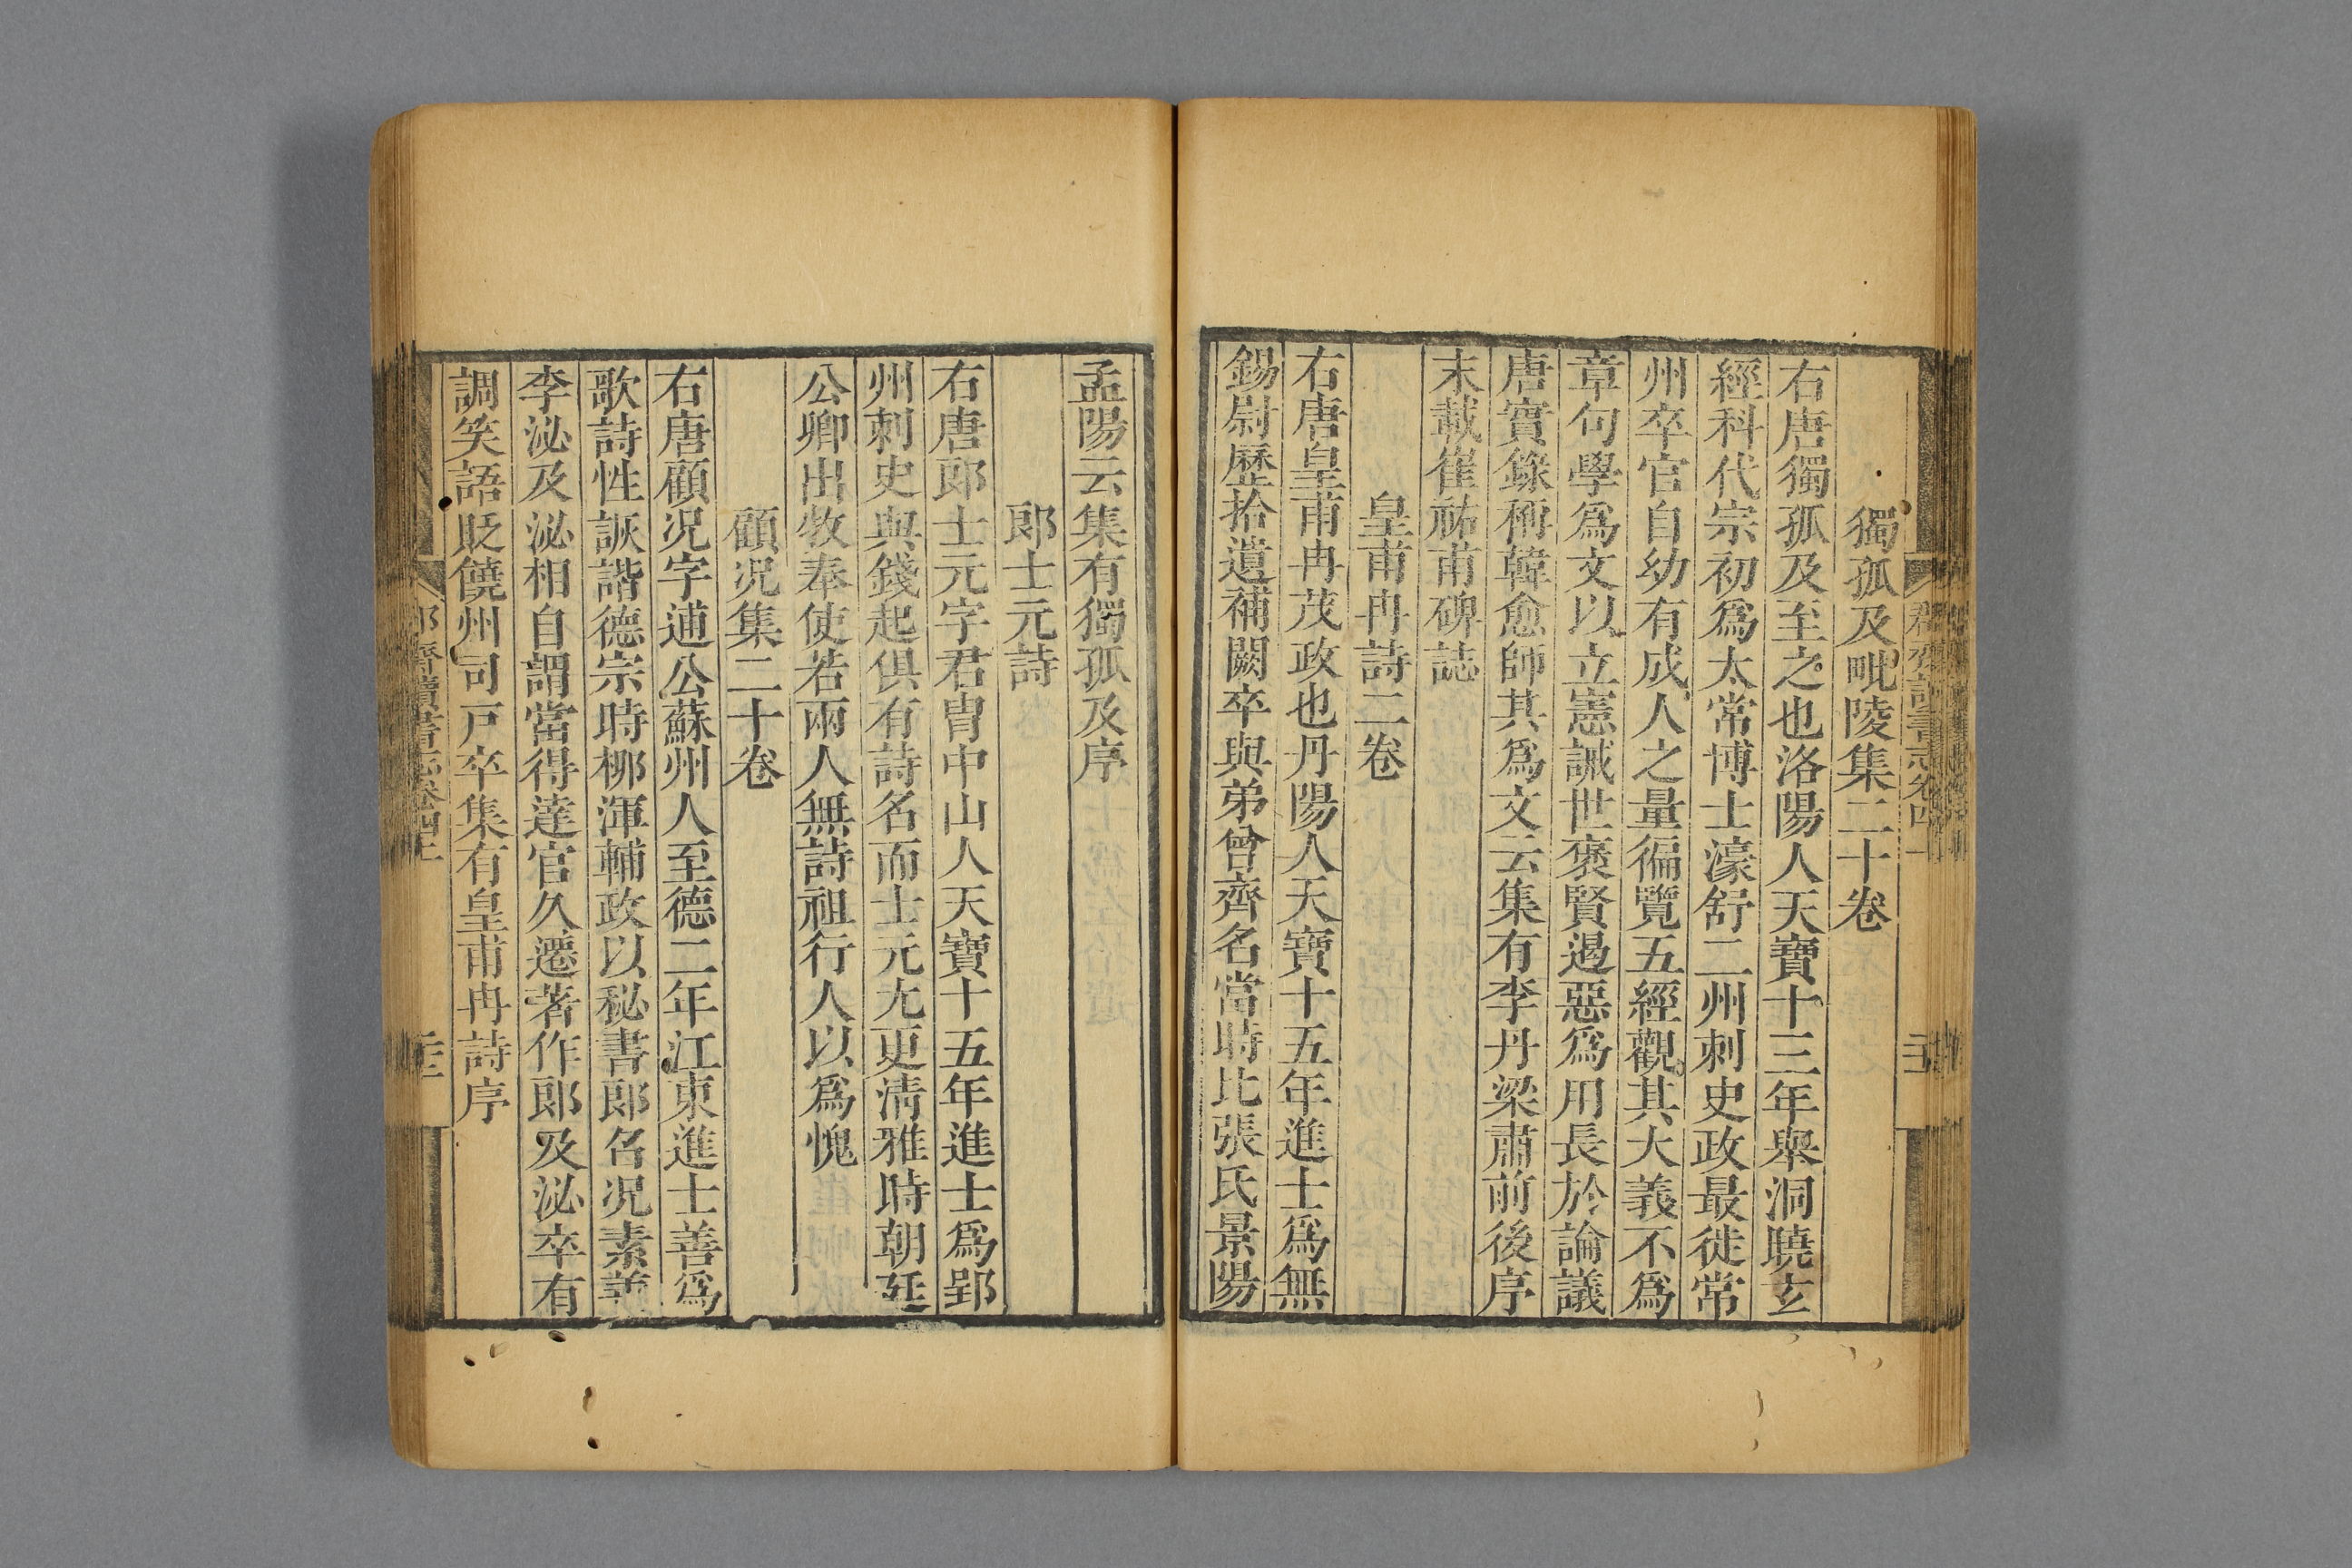 獨孤及毗陵集二十卷
右唐獨孤及至之也洛陽人天寶十三年舉洞曉玄
經科代宗初爲太常博士濠舒二州刺史政最徙常
州卒官自幼有成人之量徧覽五經觀其大義不爲
章句學爲文以立憲誡世褒賢遏惡爲用長於論議
唐實錄稱韓愈師其爲文云集有李丹梁肅前後序
末載崔祐甫碑誌
皇甫冉詩二卷
右唐皇甫冉茂政也丹陽人天寶十五年進士爲無
錫尉歷拾遺補闕卒與弟曾齊名當時比張氏景陽
孟陽云集有獨孤及序
郎士元詩
右唐郎士元字君冑中山人天寶十五年進士爲郢
州刺史與錢起俱有詩名而士元尤更清雅時朝廷
公卿出牧奉使若兩人無詩祖行人以爲愧
顧況集二十卷
右唐顧况字逋公蘇州人至德二年江東進士善爲
歌詩性詼諧德宗時柳渾輔政以秘書郎名况素善
李泌及泌相自謂當得達官久遷著作郎及泌卒有
調笑語貶饒州司戸卒集有皇甫冉詩序